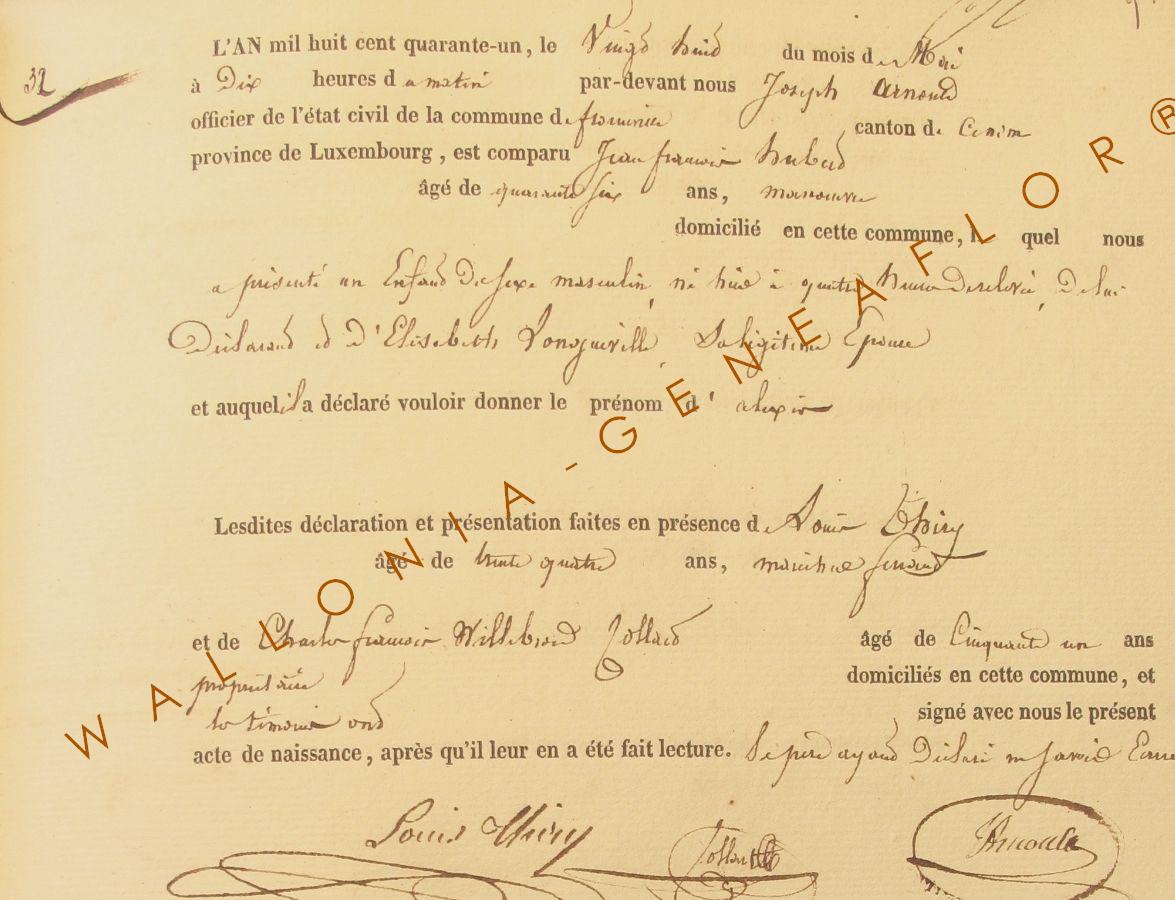 32
L'AN mil huit cent quarante-un, le Vingt huit du mois de Mai
à Dix heures du matin par-devant nous Joseph Arnould
officier de l'état civil de la commune de canton de
province de Luxembourg, est comparu Jean françois hubert
âgé de quarante six ans, manoeuvre
domicilié en cette commune, l quel nous
a présenté un Enfant Du sexe masculin, né hier à quatre heures De relevée, De lui
Déclarant et d'Elisabeth Longueville, Sa légitime Epouse
et auquel il a déclaré vouloir donner le prénom d' alexis
Lesdites déclaration et présentation faites en présence de Louis Thiry
âgé de trente quatre ans, marechal ferrant
et de Charles françois Willebrord Collard âgé de Cinquante un ans
propriétaire domiciliés en cette commune, et
les témoins ont signé avec nous le présent
acte de naissance, après qu'il leur en a été fait lecture. le père ayant Déclaré ne savoir Ecrire
Louis Thiry Collard JArnould
WALLONIA-GENEAFLOR®